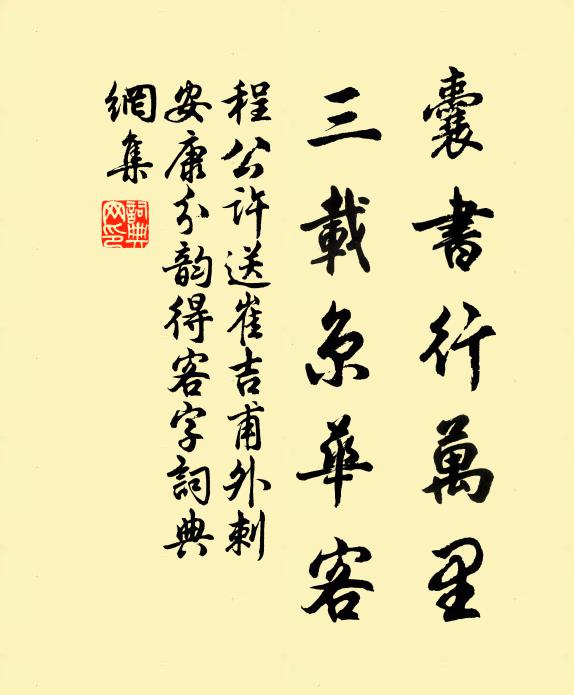 囊書行萬里
三載京華客
程公許送崔吉甫外刺
安康分韵得客字詞典
網集
詞典網印